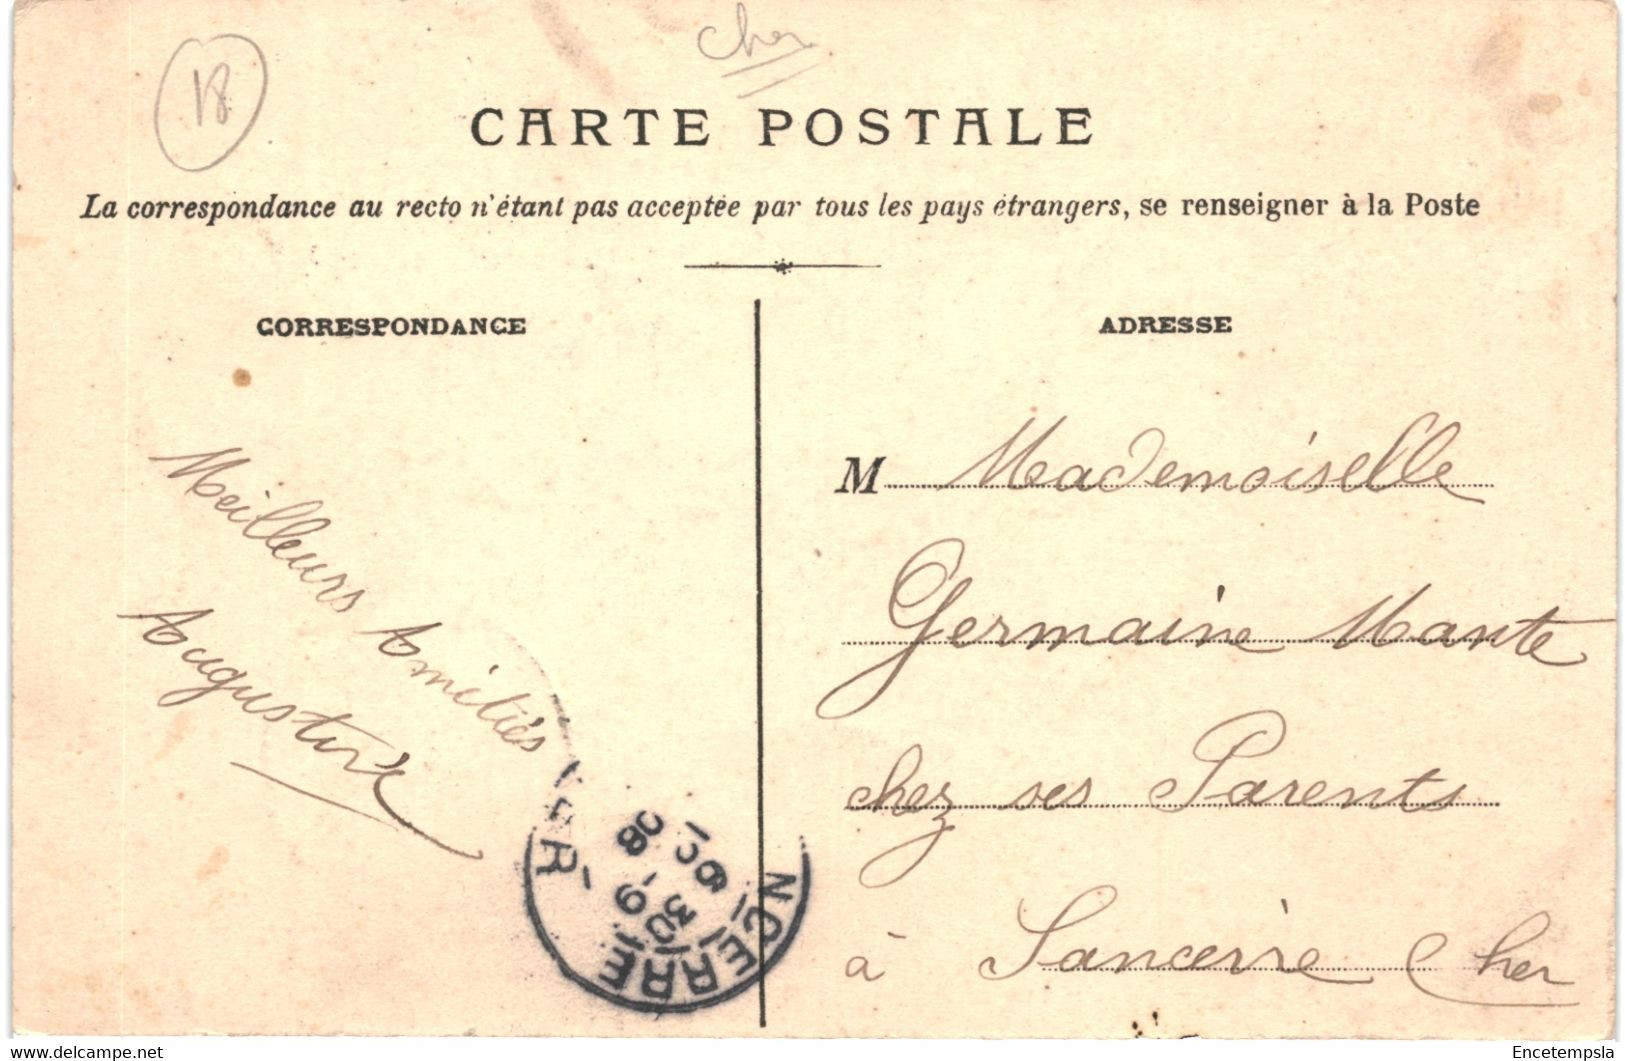 18
Cher
CARTE POSTALE
La correspondance au recto n'étant pas acceptée par tous les pays étrangers, se renseigner à la Poste
CORRESPONDANCE
Meilleurs Amitiés
Augustine
ADRESSE
M Mademoiselle
Germaine Mante
chez ses Parents
à Sancerre Cher
NCERRE
Encetempsla